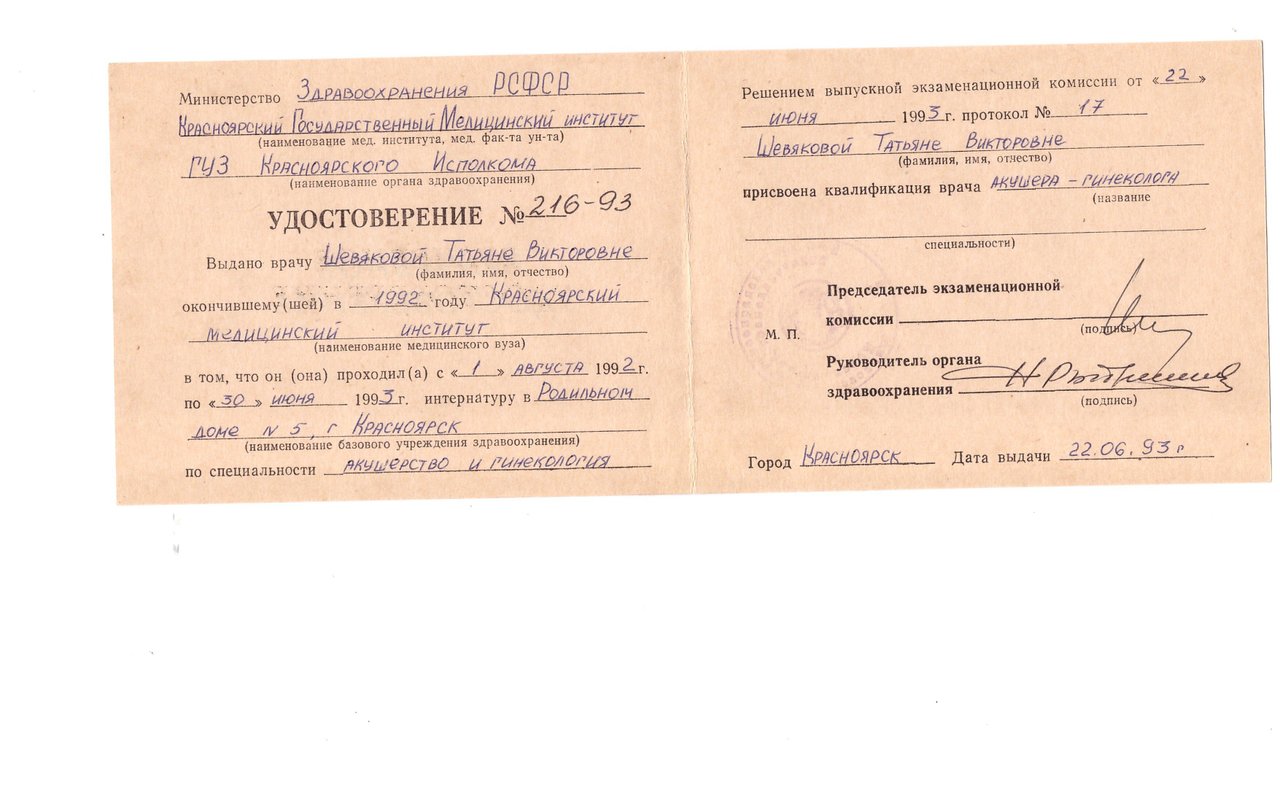 Министерство Здравоохранения РСФСР
Красноярский Государственный Медицинский институт
(наименование мед. института, мед. фак-та ун-та)
ГУЗ Красноярского Исполкома
(наименование органа здравоохранения)
УДОСТОВЕРЕНИЕ № 216-93
Выдано врачу Шевяковой Татьяне Викторовне
(фамилия, имя, отчество)
окончившему(шей) в 1992 году Красноярский
медицинский институт
(наименование медицинского вуза)
в том, что он (она) проходил(а) с «1» августа 1992г.
по «30» июня 1993г. интернатуру в Родильном
доме N 5, г Красноярск
(наименование базового учреждения здравоохранения)
по специальности акушерство и гинекология
Решением выпускной экзаменационной комиссии от «22»
июня 1993г. протокол № 17
Шевяковой Татьяне Викторовне
(фамилия, имя, отчество)
присвоена квалификация врача акушера - гинеколога
(название
специальности)
Председатель экзаменационной
комиссии
(подпись)
М. П.
Руководитель органа
здравоохранения
(подпись)
Город Красноярск Дата выдачи 22.06.93г